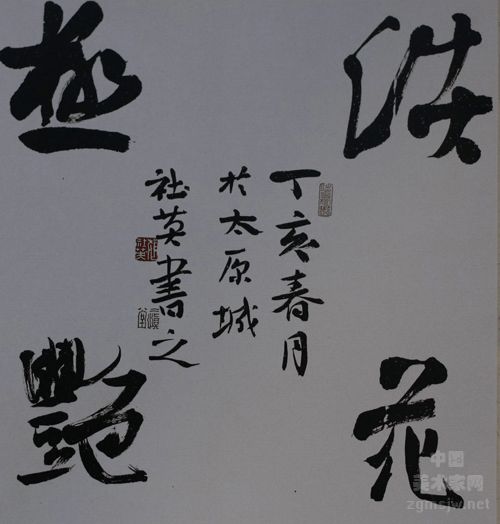 花
極艷
丁亥春月
於太原城
社英書之
中国
美术家网
zgmsjw.net